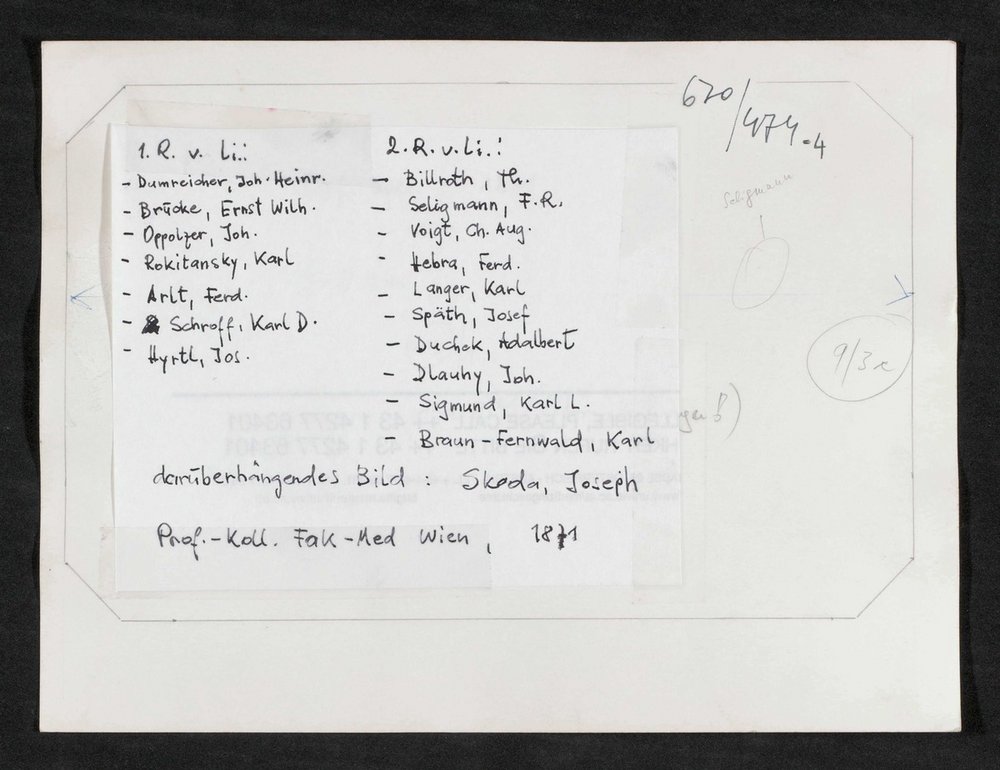 620/474-4
Seligmann
1. R. v. Li.:
- Dumreicher, Joh. Heinr.
- Brücke, Ernst Wilh.
- Oppolzer, Joh.
- Rokitansky, Karl
- Arlt, Ferd.
- Schroff, Karl D.
- Hyrtl, Jos.
2. R. v. Li.:
- Billroth, Th.
- Seligmann, F.R.
- Voigt, Ch. Aug.
- Hebra, Ferd.
- Langer, Karl
- Späth, Josef
- Duchek, Adalbert
- Dlauhy, Joh.
- Sigmund, Karl L.
- Braun-Fernwald, Karl
darüberhängendes Bild : Skoda, Joseph
Prof.-Koll. Fak-Med Wien, 1871